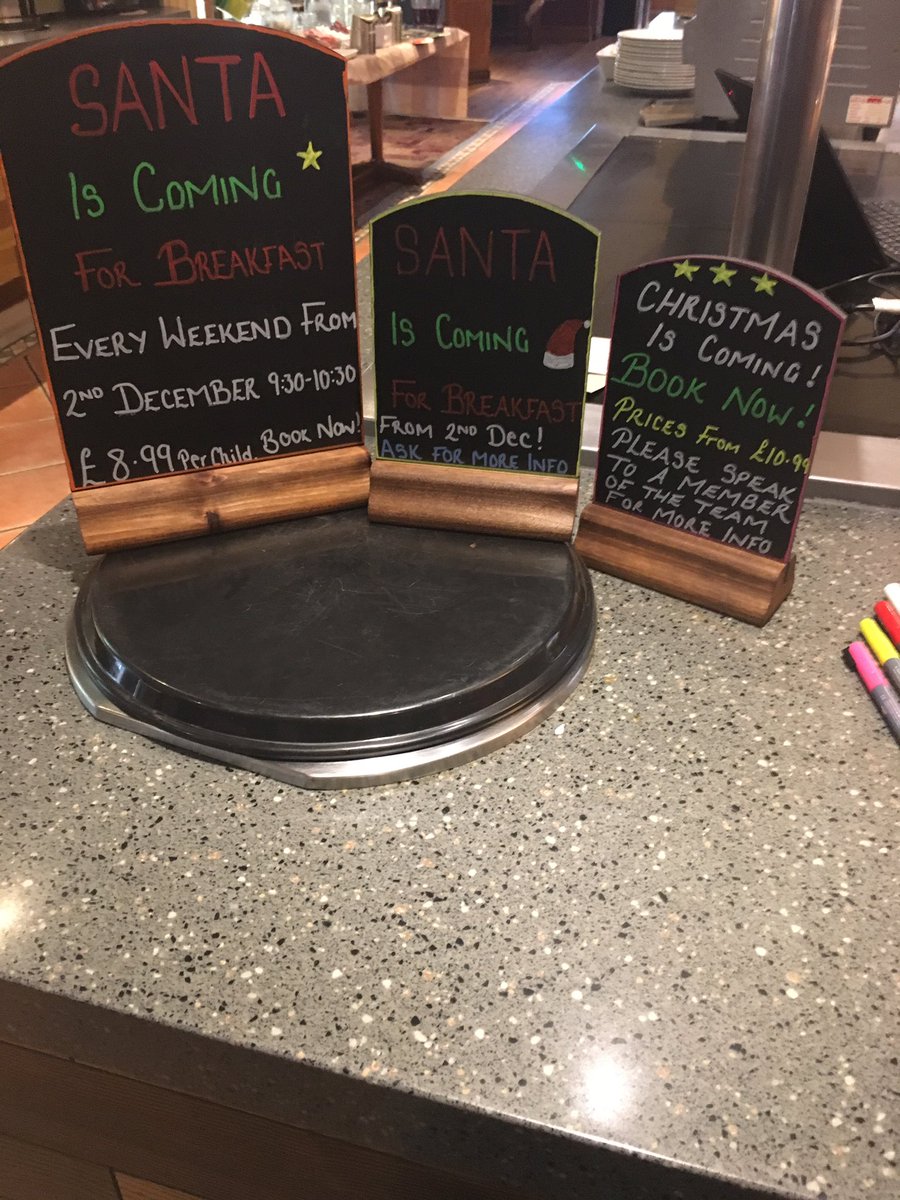 SANTA
Is Coming
For Breakfast
Every Weekend From
2ND December 9:30-10:30
£8.99 Per Child. Book Now!
SANTA
Is Coming
For Breakfast
From 2ND Dec!
Ask For More Info
Christmas
Is Coming!
Book Now!
Prices From £10.99
Please Speak
To A Member
Of The Team
For More Info